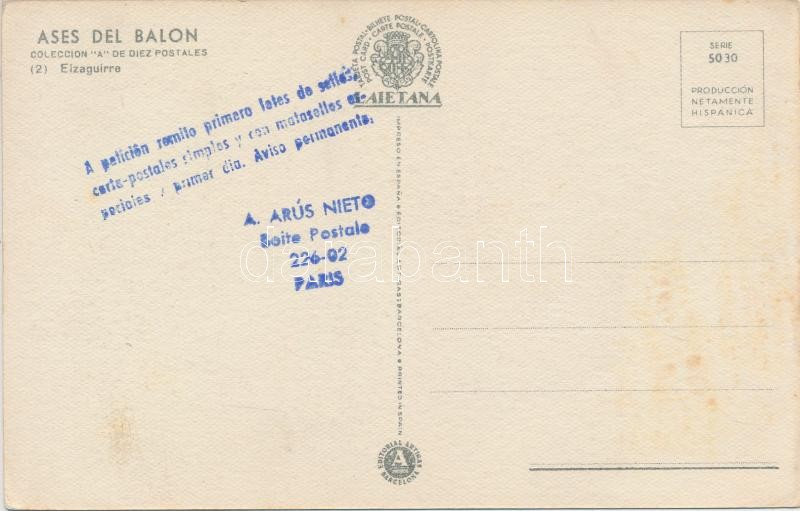 ASES DEL BALON
COLECCION "A" DE DIEZ POSTALES
(2) Eizaguirre
TARJETA POSTAL·BILHETE POSTAL·CARTOLINA POSTALE
POST CARD · CARTE POSTALE · POSTKARTE
LAIETANA
SERIE
5030
PRODUCCIÓN
NETAMENTE
HISPÁNICA
A petición remito primero lotes de sellos,
carta-postales simples y con matasellos es-
peciales / primer dia. Aviso permanente.
A. ARÚS NIETO
Boite Postale
226-02
PARIS
IMPRESO EN ESPAÑA ● EDITORIAL ARTIGAS ● BARCELONA ● PRINTED IN SPAIN
darabanth
EDITORIAL ARTIGAS
A
BARCELONA